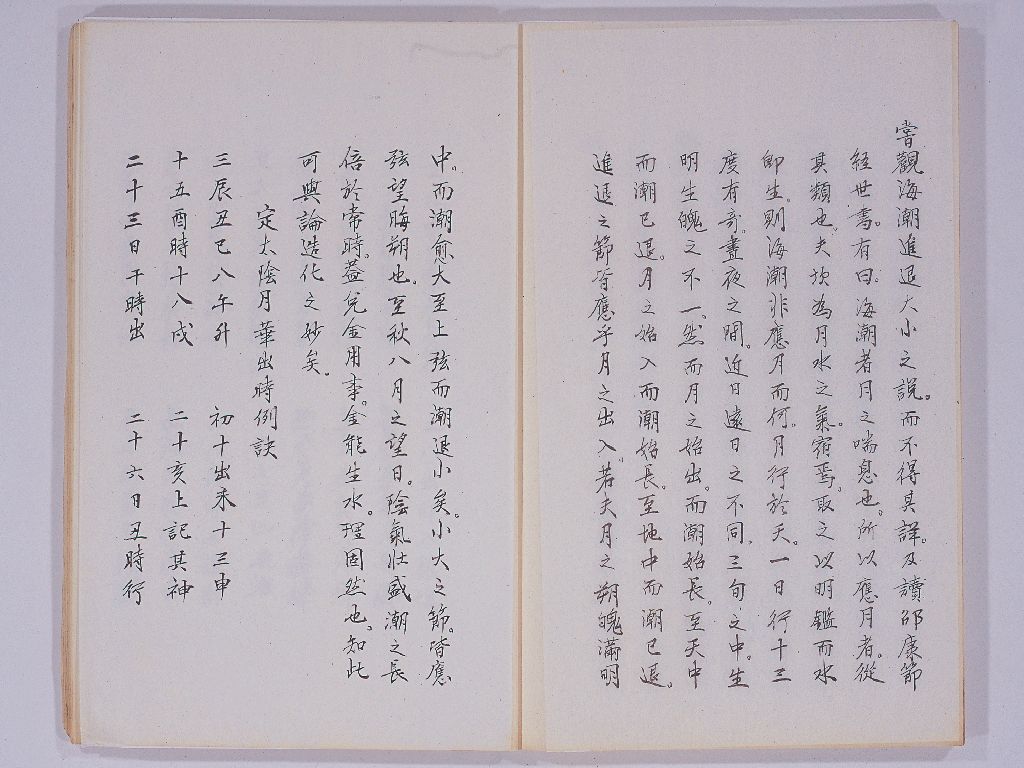 嘗觀海潮進退大小之說。而不得其詳。及讀邵康節
經世書。有曰。海潮者月之喘息也。所以應月者。從
其類也。夫坎為月水之氣。宿焉。取之以明鑑而水
即生。則海潮非應月而何。月行於天。一日行十三
度有奇。晝夜之間。近日遠日之不同。三旬之中。生
明生魄之不一。然而月之始出。而潮始長。至天中
而潮已退。月之始入而潮始長。至地中而潮已退。
進退之節皆應乎月之出入。若夫月之朔魄滿明
中。而潮愈大至上弦而潮退小矣。小大之節。皆應
弦望晦朔也。至秋八月之望日。陰氣壯盛潮之長
倍於常時。蓋兌金用事。金能生水。理固然也。知此
可與論造化之妙矣。
定太陰月華出時例訣
三辰五巳八午升 初十出未十三申
十五酉時十八戌 二十亥上記其神
二十三日子時出 二十六日丑時行